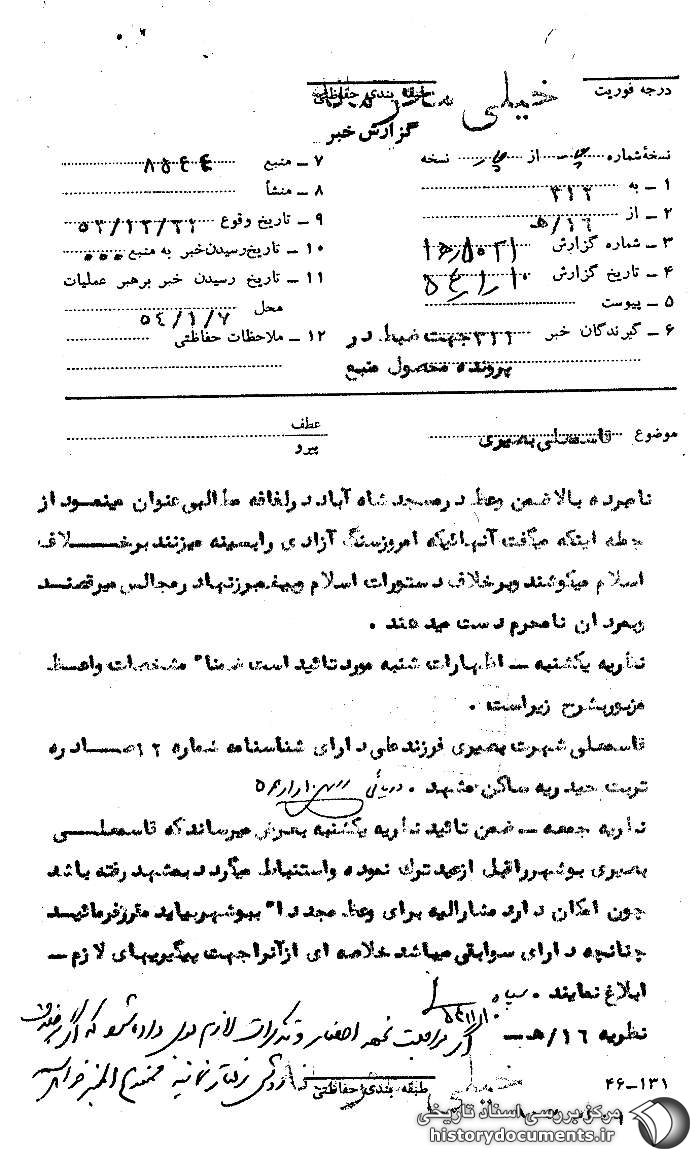 درجه فوریت
خیلی
طبقه بندی حفاظتی
گزارش خبر
نسخهٔ شماره از نسخه
۱ – به ۳۱۲
۲ – از ۱۶/هـ
۳ – شماره گزارش
۴ – تاریخ گزارش
۵ – پیوست
۶ – گیرندگان خبر جهت ضبط در
پرونده محصول منبع
۷ – منبع
۸ – منشأ
۹ – تاریخ وقوع
۱۰ – تاریخ رسیدن خبر به منبع
۱۱ – تاریخ رسیدن خبر برهبر عملیات
محل ۵۴/۱/۷
۱۲ – ملاحظات حفاظتی
عطف
پیرو
موضوع قاسمعلی بصیری
نامبرده بالا ضمن وعظ در مسجد شاه آباد در لفافه مطالبی عنوان مینمود از
جمله اینکه میگفت آنهائیکه امروز سنگ آزادی را بسینه میزنند برخلاف
اسلام میکوشند و برخلاف دستورات اسلام و پیغمبر زنها در مجالس میرقصند
و بمردان نامحرم دست میدهند .
نظریه یکشنبه – اظهارات شنبه مورد تائید است ضمنا" مشخصات واعظ
مزبور بشرح زیر است .
قاسمعلی شهرت بصیری فرزند علی دارای شناسنامه شماره ۱۲ صادره
تربت حیدریه ساکن مشهد . دریائی
نظریه جمعه – ضمن تائید نظریه یکشنبه بعرض میرساند که قاسمعلی
بصیری بوشهر را قبل از عید ترک نموده و استنباط میگردد بمشهد رفته باشد
چون امکان دارد مشارالیه برای وعظ مجددا" ببوشهر بیاید مقرر فرمائید
چنانچه دارای سوابقی میباشد خلاصه ای از آنرا جهت پیگیریهای لازم –
ابلاغ نمایند .
نظریه ۱۶/هـ – اگر مراجعت نمود احضار و تذکرات لازم بوی داده شود که اگر
خیلی
طبقه بندی حفاظتی
۴۶–۱۳۱
مرکز بررسی اسناد تاریخی
historydocuments.ir